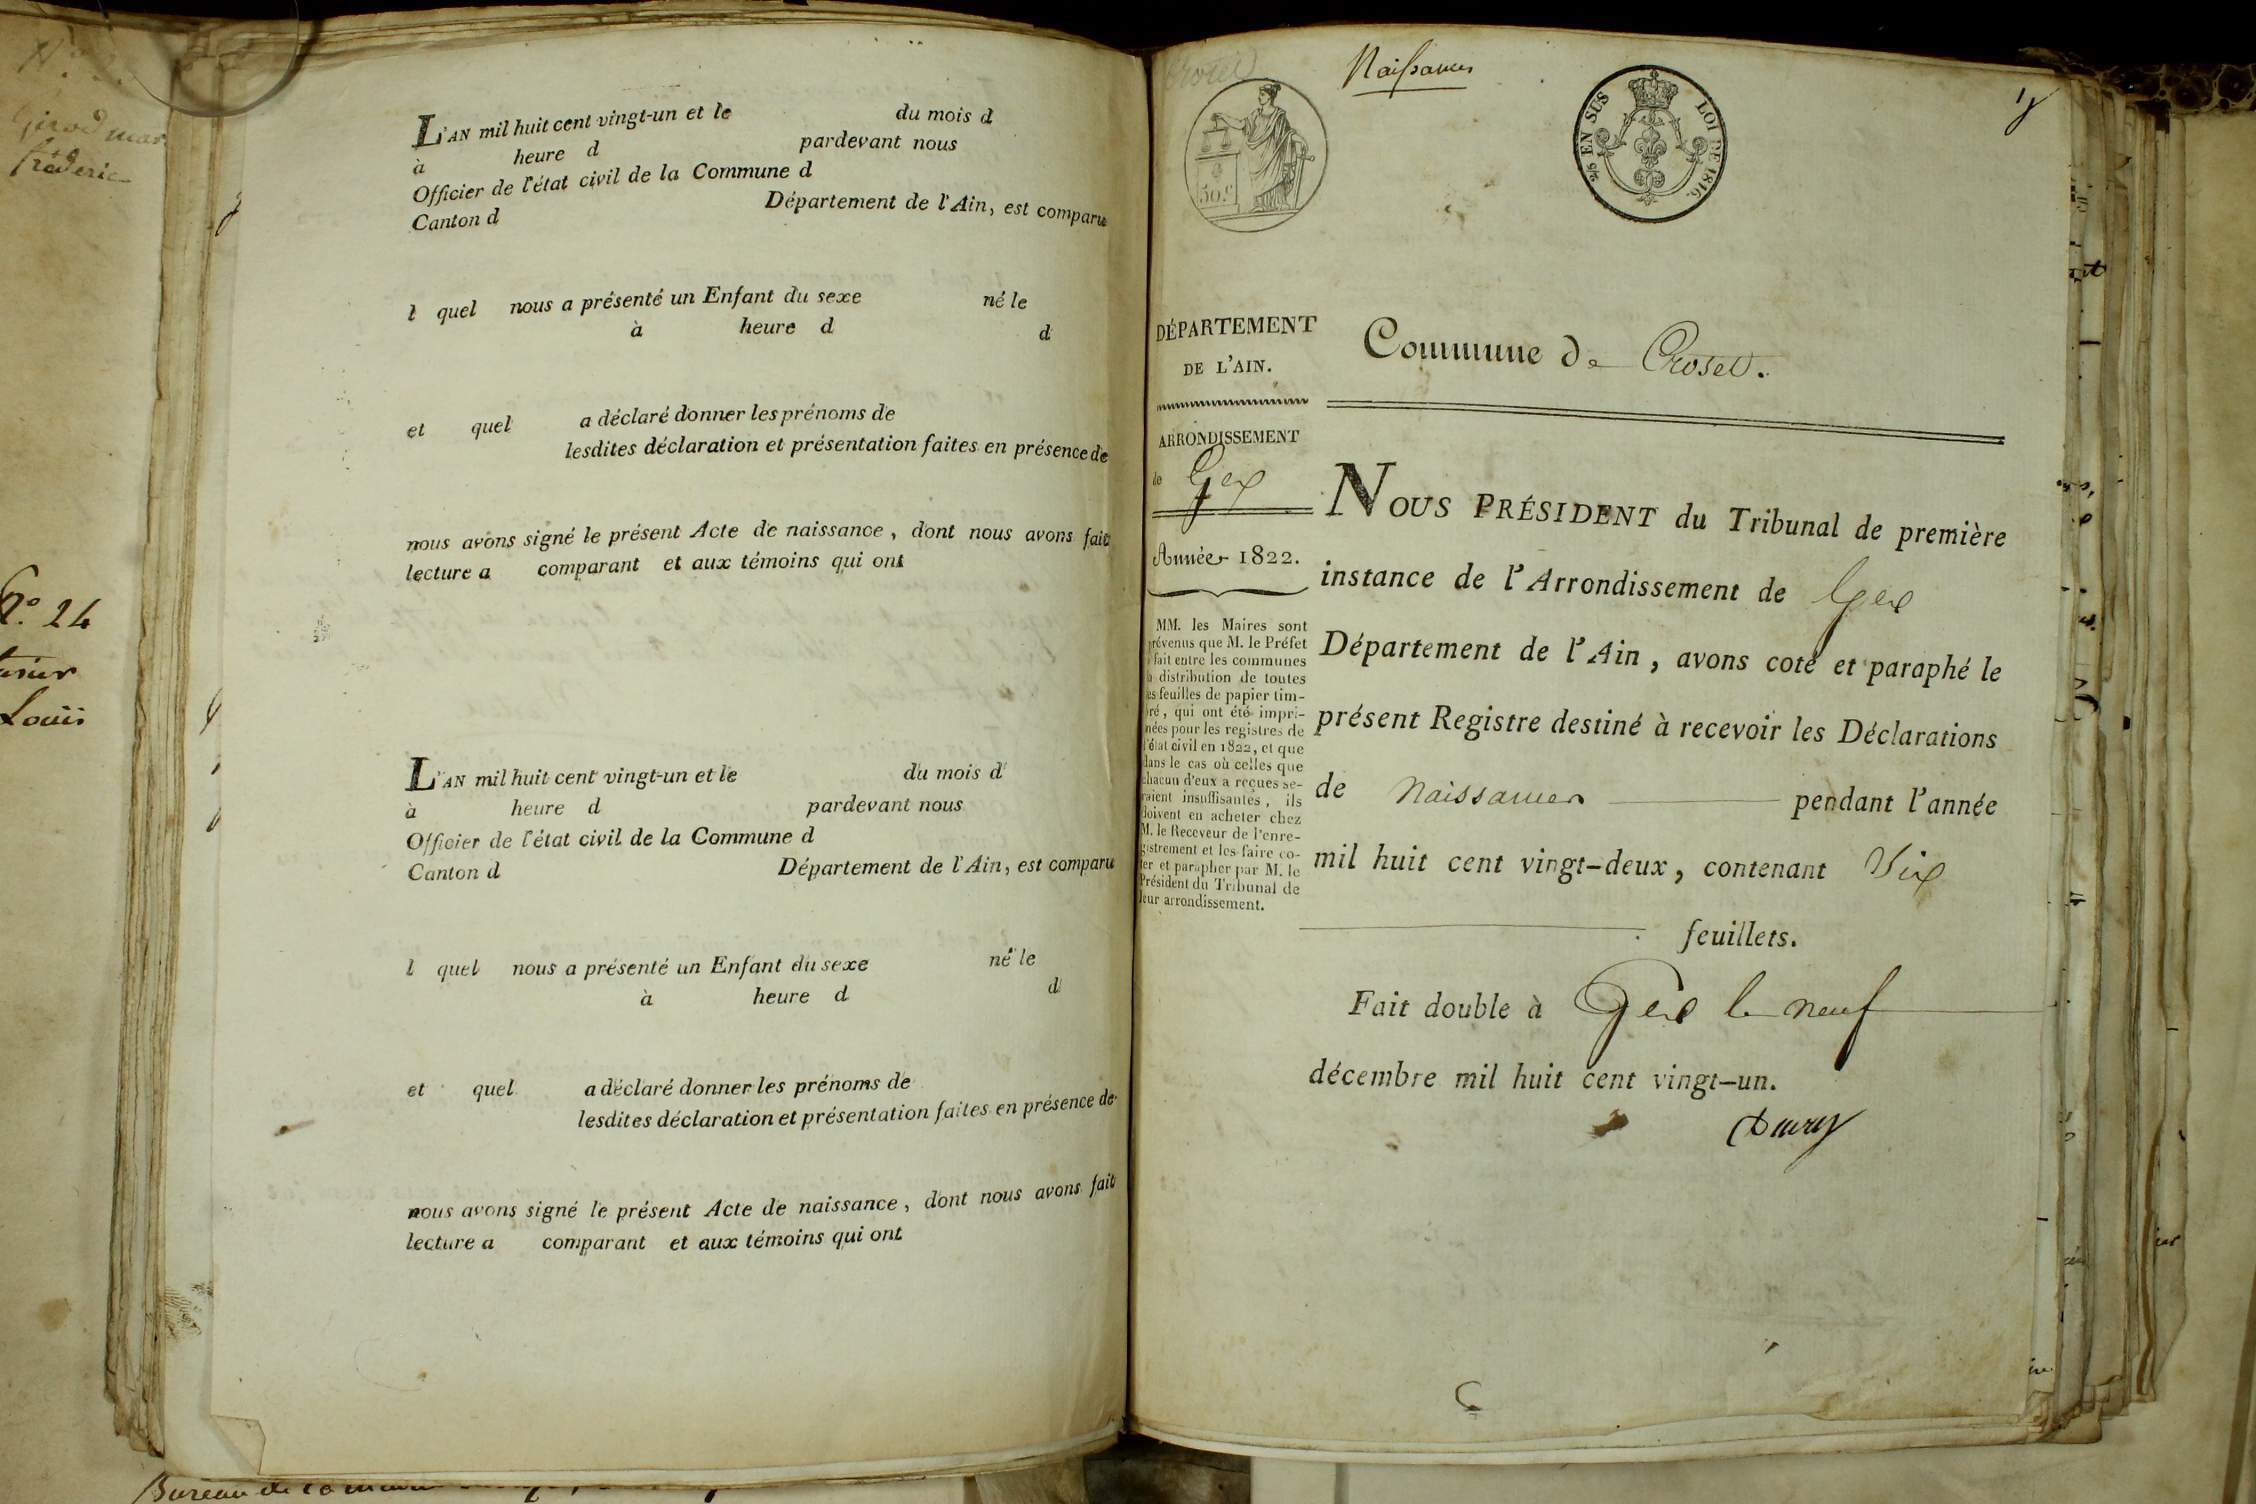 Girod mar
fréderic
N.º 24
Louïs
L'AN mil huit cent vingt-un et le du mois d
à heure d pardevant nous
Officier de l'état civil de la Commune d
Canton d Département de l'Ain, est comparu
l quel nous a présenté un Enfant du sexe né le
à heure d d
et quel a déclaré donner les prénoms de
lesdites déclaration et présentation faites en présence de
nous avons signé le présent Acte de naissance, dont nous avons fait
lecture a comparant et aux témoins qui ont
L'AN mil huit cent vingt-un et le du mois d
à heure d pardevant nous
Officier de l'état civil de la Commune d
Canton d Département de l'Ain, est comparu
l quel nous a présenté un Enfant du sexe né le
à heure d d
et quel a déclaré donner les prénoms de
lesdites déclaration et présentation faites en présence de
nous avons signé le présent Acte de naissance, dont nous avons fait
lecture a comparant et aux témoins qui ont
Bureau de
Crozet
Naissances
50 c
2/5 EN SUS LOI DE 1816.
DÉPARTEMENT
DE L'AIN.
ARRONDISSEMENT
de Gex
Année 1822.
MM. les Maires sont
prévenus que M. le Préfet
a fait entre les communes
la distribution de toutes
les feuilles de papier tim-
bré, qui ont été impri-
mées pour les registres de
l'état civil en 1822, et que
dans le cas où celles que
chacun d'eux a reçues se-
raient insuffisantes, ils
doivent en acheter chez
M. le Receveur de l'enre-
gistrement et les faire co-
ter et parapher par M. le
Président du Tribunal de
leur arrondissement.
Commune de Croset.
NOUS PRÉSIDENT du Tribunal de première
instance de l'Arrondissement de Gex
Département de l'Ain, avons coté et paraphé le
présent Registre destiné à recevoir les Déclarations
de Naissances pendant l'année
mil huit cent vingt-deux, contenant Six
feuillets.
Fait double à Gex le neuf
décembre mil huit cent vingt-un.